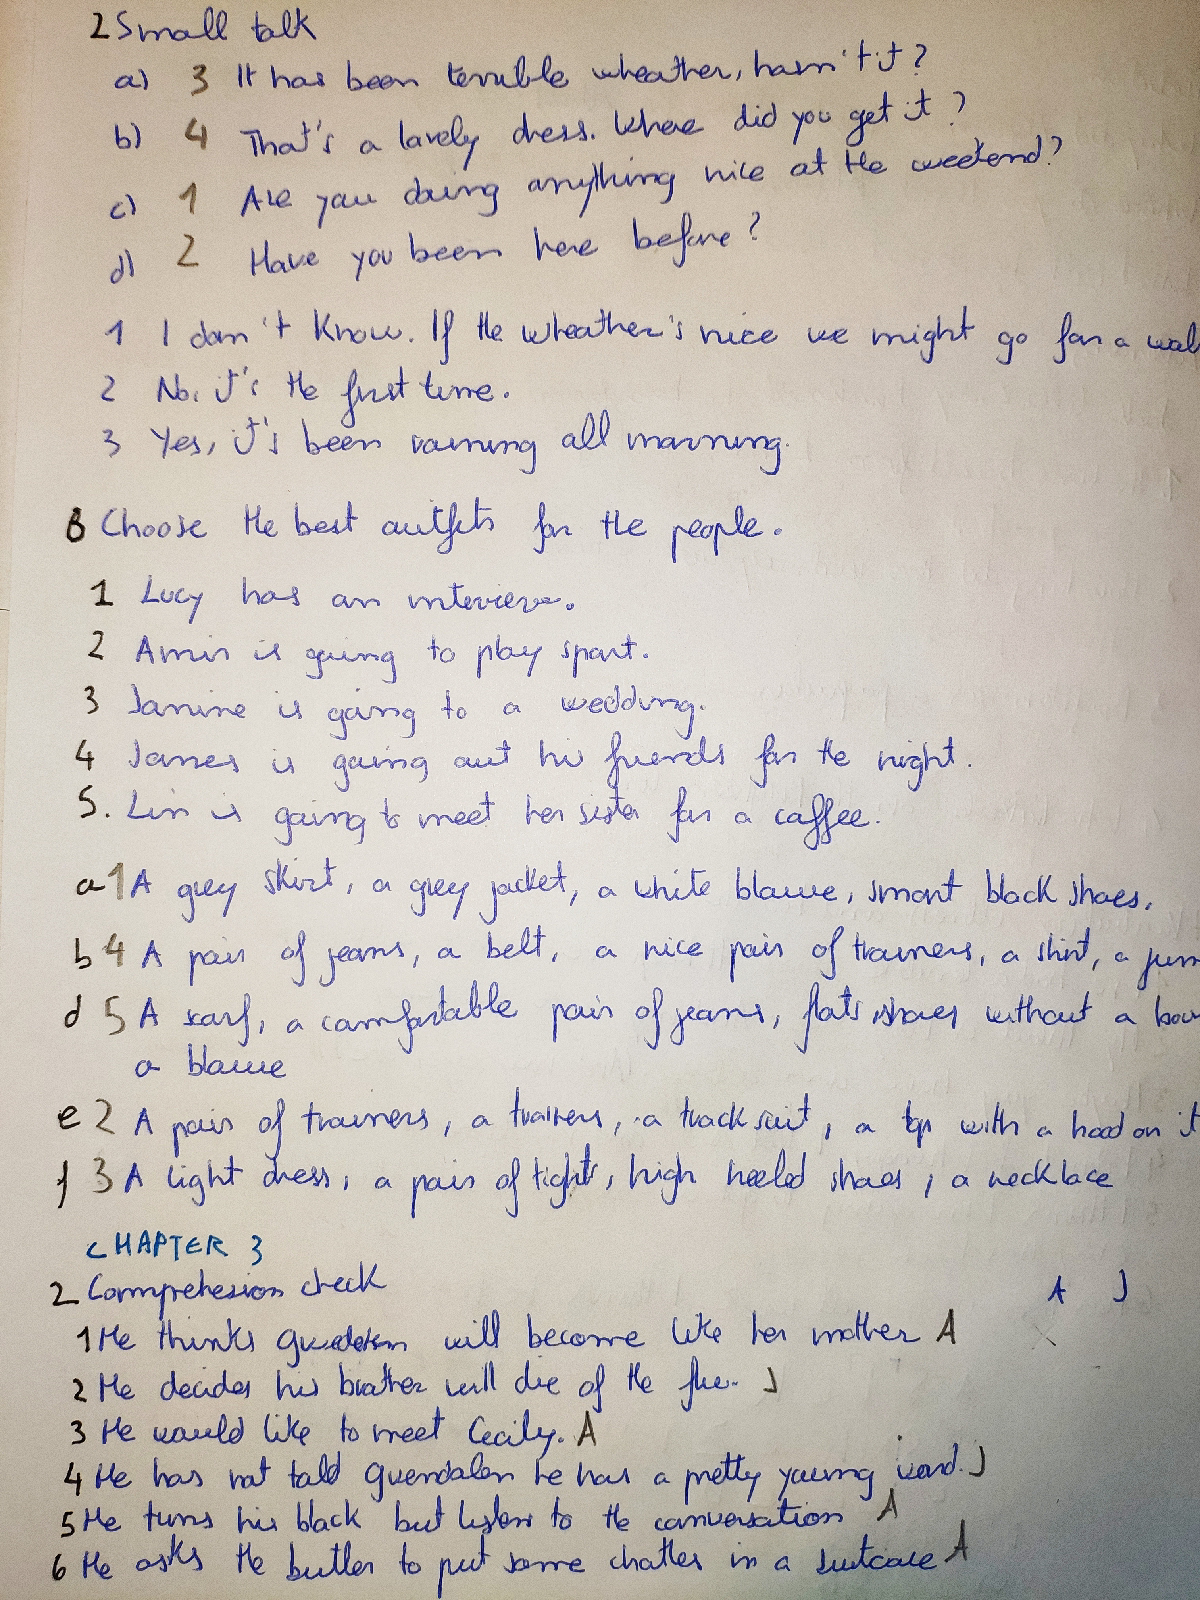 2 Small talk
a) 3 It has been terrible wheather, hasn't it?
b) 4 That's a lovely dress. Where did you get it?
c) 1 Are you doing anything nice at the weekend?
d) 2 Have you been here before?
1 I don't know. If the wheather's nice we might go for a wal
2 No, it's the first time.
3 Yes, it's been raining all morning.
8 Choose the best outfits for the people.
1 Lucy has an interview.
2 Amin is going to play sport.
3 Janine is going to a wedding.
4 James is going out his friends for the night.
5. Lin is going to meet her sister for a caffee.
a 1 A grey skirt, a grey jacket, a white blouse, smart black shoes.
b 4 A pair of jeans, a belt, a nice pair of trainers, a shirt, a jum
d 5 A scarf, a comfortable pair of jeans, flats shoes without a
a blouse
e 2 A pair of trainers, a trainers, a track suit, a top with a hood on it
f 3 A light dress, a pair of tights, high heeled shoes, a necklace
CHAPTER 3
2 Comprehesion check A J
1 He thinks will become like her mother A
2 He decides his brother will die of the flu. J
3 He would like to meet Cecily. A
4 He has not told Guendalen he has a pretty young ward. J
5 He turns his black but listens to the conversation A
6 He asks the butler to put some chatles in a suitcase A